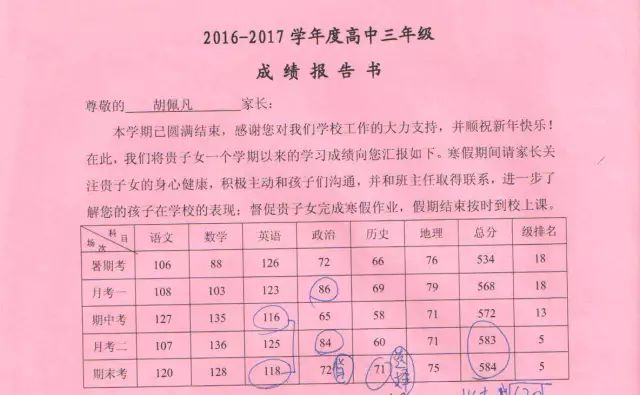 2016-2017 学年度高中三年级
成 绩 报 告 书
尊敬的 胡佩凡 家长：
本学期已圆满结束，感谢您对我们学校工作的大力支持，并顺祝新年快乐！
在此，我们将贵子女一个学期以来的学习成绩向您汇报如下。寒假期间请家长关
注贵子女的身心健康，积极主动和孩子们沟通，并和班主任取得联系，进一步了
解您的孩子在学校的表现；督促贵子女完成寒假作业，假期结束按时到校上课。
科目 场次 语文 数学 英语 政治 历史 地理 总分 级排名
暑期考 106 88 126 72 66 76 534 18
月考一 108 103 123 86 69 79 568 18
期中考 127 135 116 65 58 71 572 13
月考二 107 136 125 84 60 71 583 5
期末考 120 128 118 72 71 75 584 5